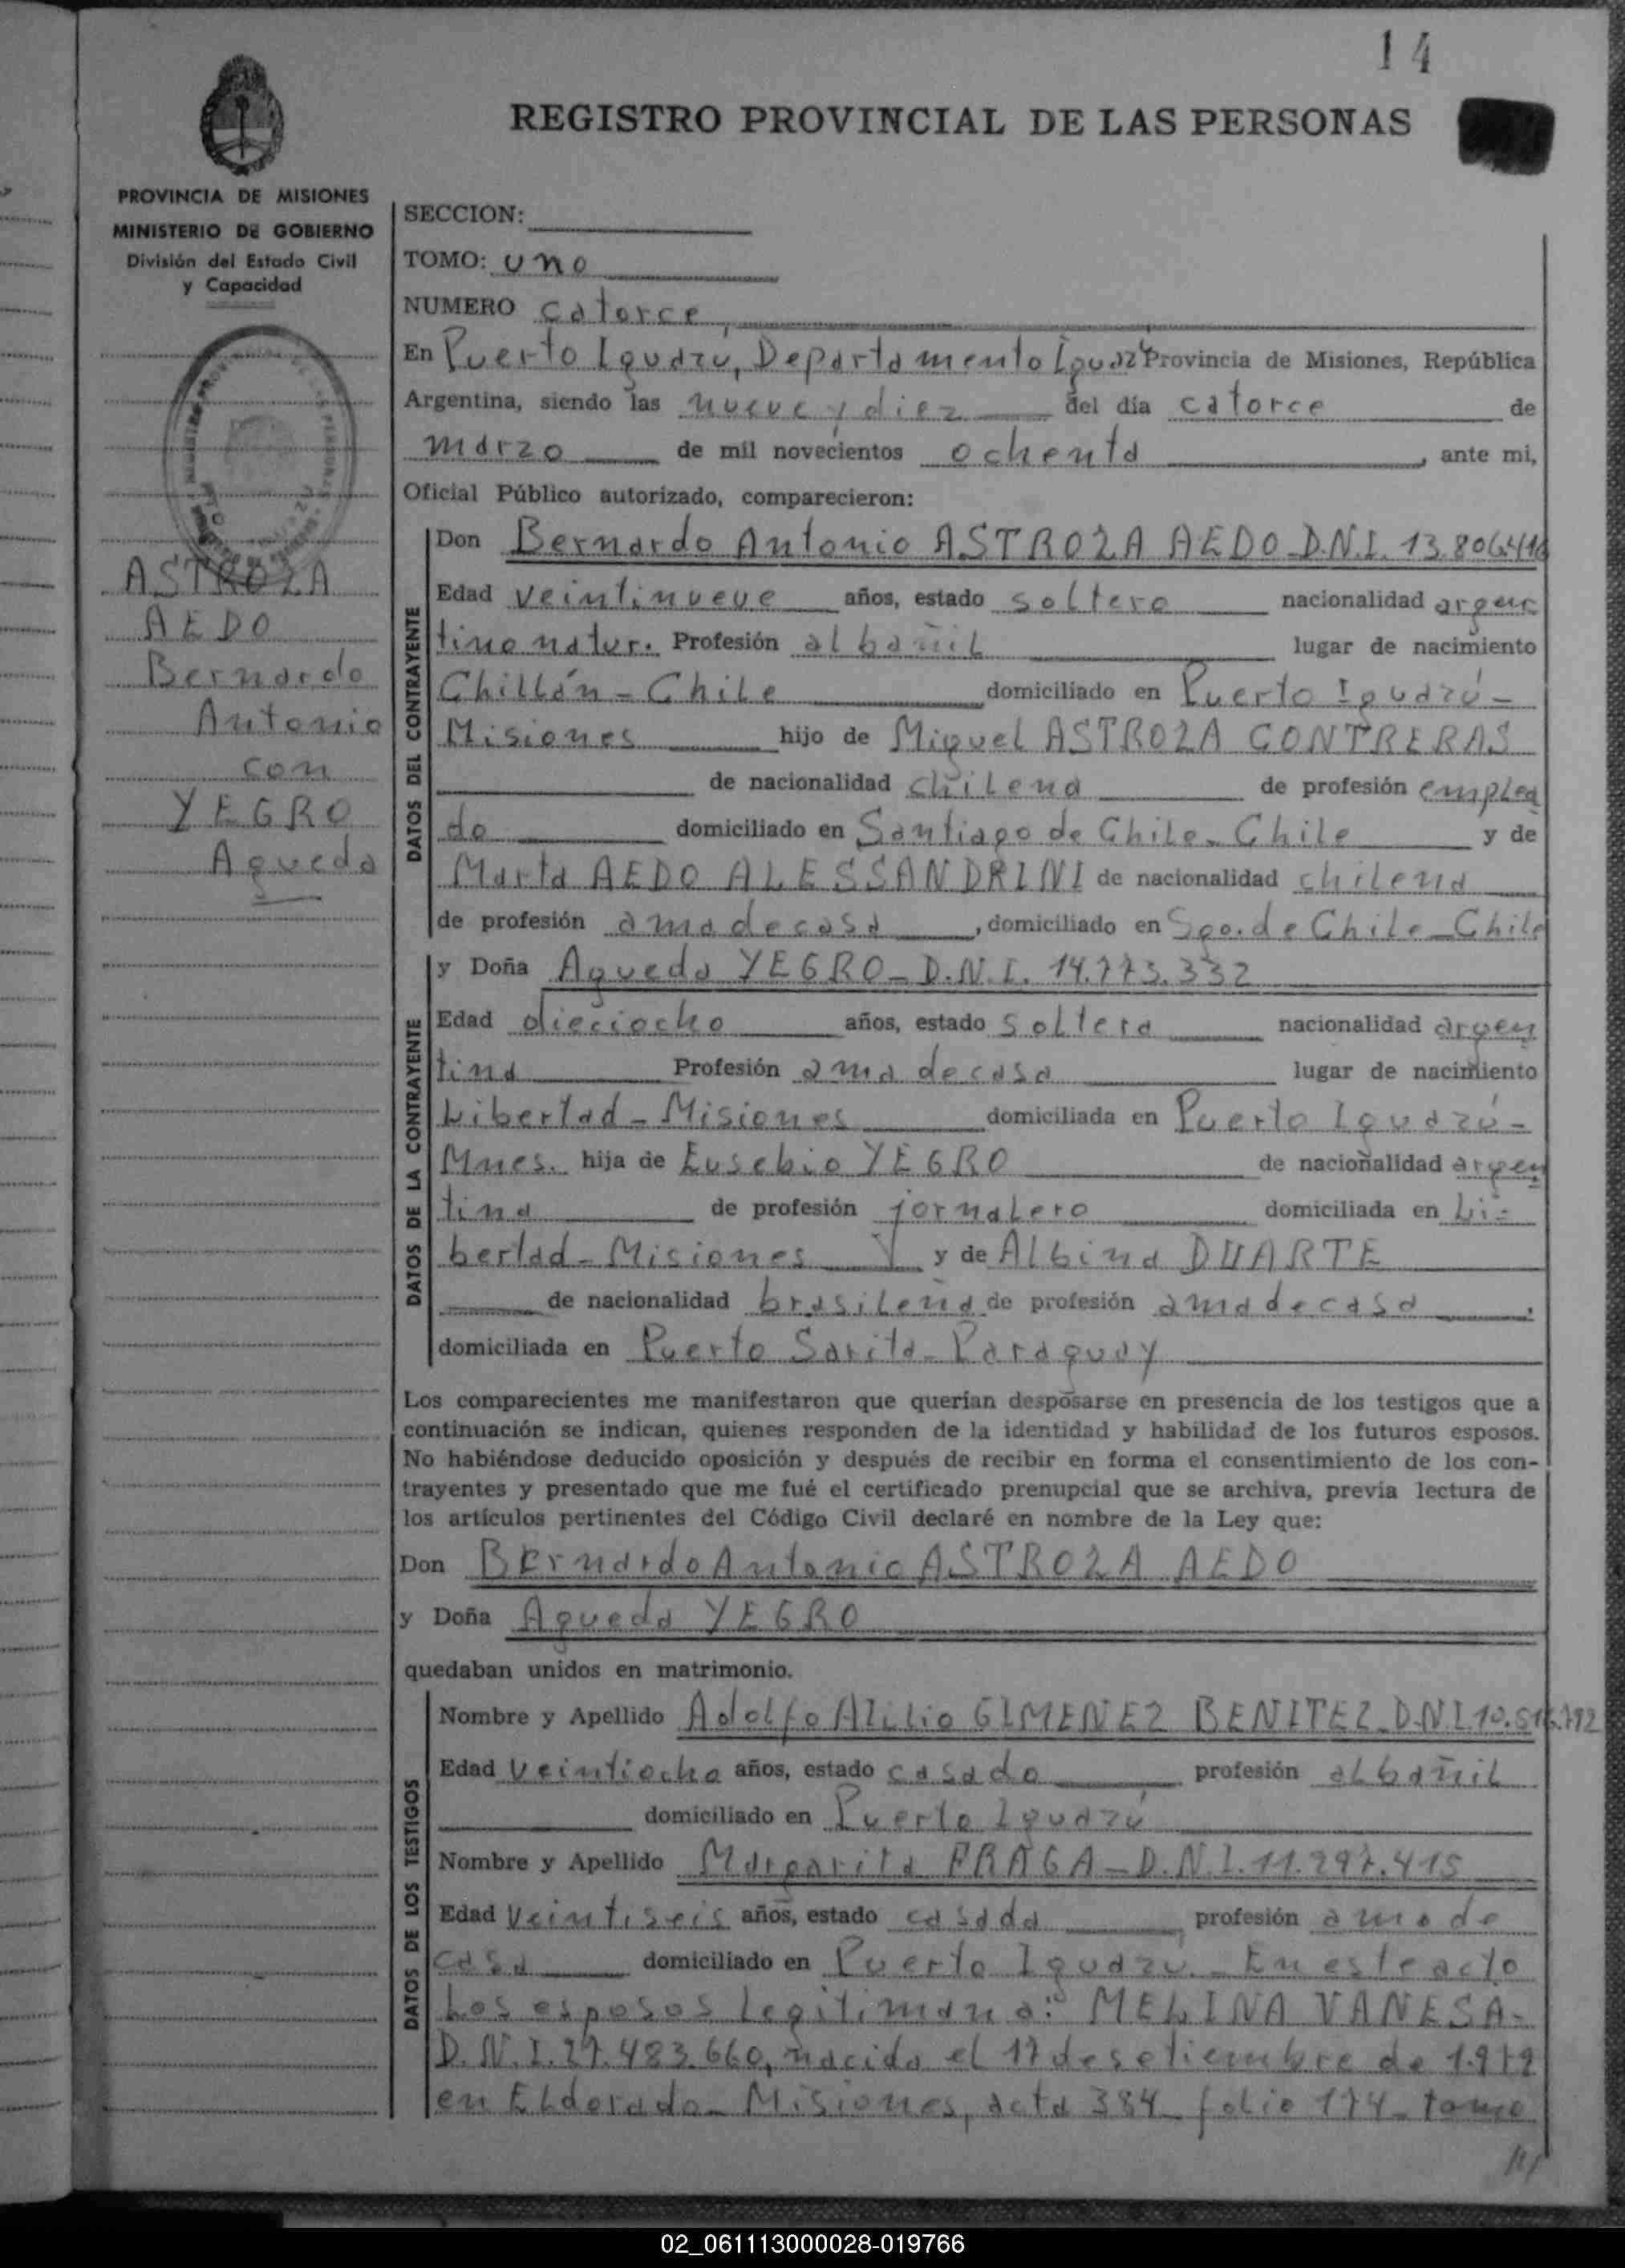 14
REGISTRO PROVINCIAL DE LAS PERSONAS
PROVINCIA DE MISIONES
MINISTERIO DE GOBIERNO
División del Estado Civil
y Capacidad
ASTROZA
AEDO
Bernardo
Antonio
con
YEGRO
Agueda
SECCION:
TOMO: uno
NUMERO catorce
En Puerto Iguazú, Departamento Iguazú Provincia de Misiones, República
Argentina, siendo las nueve y diez del día catorce de
marzo de mil novecientos ochenta, ante mi,
Oficial Público autorizado, comparecieron:
DATOS DEL CONTRAYENTE
Don Bernardo Antonio ASTROZA AEDO D.N.I. 13.806.416
Edad veintinueve años, estado soltero nacionalidad argen
tino natur. Profesión albañil lugar de nacimiento
Chillán - Chile domiciliado en Puerto Iguazú -
Misiones hijo de Miguel ASTROZA CONTRERAS
de nacionalidad chilena de profesión emplea
do domiciliado en Santiago de Chile - Chile y de
Marta AEDO ALESSANDRINI de nacionalidad chilena
de profesión ama de casa, domiciliado en Sgo. de Chile - Chile
DATOS DE LA CONTRAYENTE
y Doña Agueda YEGRO - D.N.I. 14.773.332
Edad dieciocho años, estado soltera nacionalidad argen
tina Profesión ama de casa lugar de nacimiento
Libertad - Misiones domiciliada en Puerto Iguazú -
Mnes. hija de Eusebio YEGRO de nacionalidad argen
tina de profesión jornalero domiciliada en Li-
bertad - Misiones y de Albina DUARTE
de nacionalidad brasileña de profesión ama de casa,
domiciliada en Puerto Sarita - Paraguay
Los comparecientes me manifestaron que querían desposarse en presencia de los testigos que a
continuación se indican, quienes responden de la identidad y habilidad de los futuros esposos.
No habiéndose deducido oposición y después de recibir en forma el consentimiento de los con-
trayentes y presentado que me fué el certificado prenupcial que se archiva, previa lectura de
los artículos pertinentes del Código Civil declaré en nombre de la Ley que:
Don Bernardo Antonio ASTROZA AEDO
y Doña Agueda YEGRO
quedaban unidos en matrimonio.
DATOS DE LOS TESTIGOS
Nombre y Apellido Adolfo Atilio GIMENEZ BENITEZ D.N.I. 10.516.792
Edad veintiocho años, estado casado profesión albañil
domiciliado en Puerto Iguazú
Nombre y Apellido Margarita FRAGA - D.N.I. 11.297.415
Edad veintiseis años, estado casada profesión ama de
casa domiciliado en Puerto Iguazú. - En este acto
los esposos legitiman a: MELINA VANESA -
D.N.I. 27.483.660, nacida el 17 de setiembre de 1.979
en Eldorado - Misiones, acta 384 - folio 174 - tomo
///
02_061113000028-019766